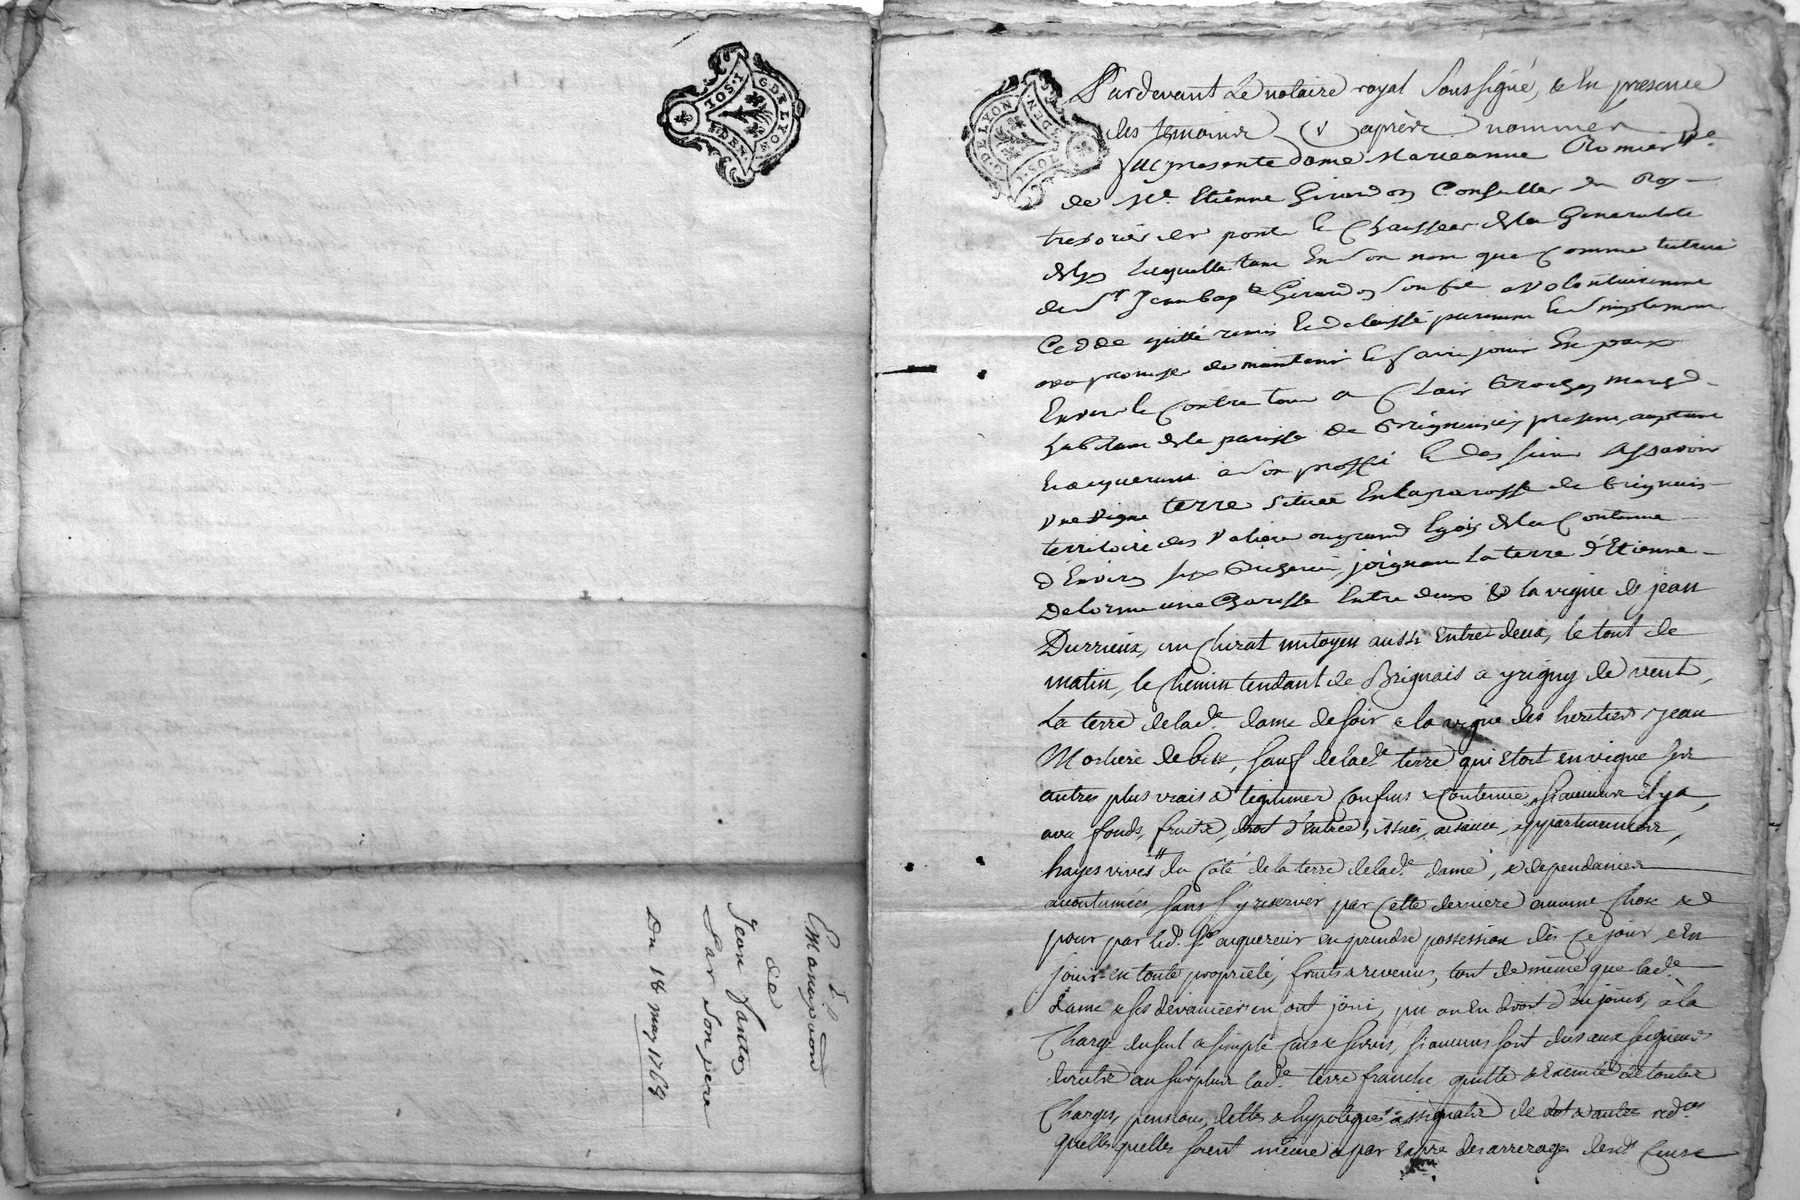 G. DE LYON
10 S. I
3 DEN
Emancipation
de
Jean
par son pere
Du 18 may 1769
G. DE LYON
DEN
10 S. I
Pardevant Le notaire royal soussigné, & En presence
des temoins cy après nommés
fut presente dame Marieanne Romier Ve
de Me Etienne Girardon Conseiller du Roy
tresorier des ponts & Chaussées de la Generalité
de Lyon laquelle tant En son nom que Comme tutrice
de Sr Jean bapte Girardon son fils a volontairement
Ceddé quitté remis & delaissé purement & simplement
avec promesse de maintenir & faire jouir En paix
Envers & Contre tous a Clair march
habitant de la paroisse de presente acceptant
& acquerant a son proffit & des siens assavoir
une vigne terre située En la paroisse de Brignais
territoire des au grand de la Contenue
d'Environ six joignant La terre d'Etienne
Delorme une Entre deux & la vigne de jean
Durrieux, un Chirat mitoyen aussi Entre deux, le tout de
matin, le Chemin tendant de Brignais a yrigny de vent,
La terre de lade dame de soir & la vigne des heritiers jean
de bise, sauf de lade terre qui Etoit en vigne ses
autres plus vrais & legitimes Confins & Contenue si aucuns il y a,
avec fonds, fruits, droit d'Entrée, issues, aisances, appartenances,
hayes vives du Coté de la terre de lade dame, & dependances
accoutumées sans s'y reserver par Cette derniere aucune Chose &
pour par led. Sr acquereur en prendre possession dès Ce jour, & En
jouir en toute proprieté, fruits & revenus, tout de même que lade
dame & ses devanciers en ont joui, pu ou En droit d'En jouir, à la
Charge du seul & simple Cens & servis, si aucuns sont dus aux seigneurs
directs au surplus lade terre franche quitte & Exempte de toutes
Charges, pensions, dettes & hypoteques de & autres redces
quelles quelles soient même & par Exprès des arrerages desds Cens &